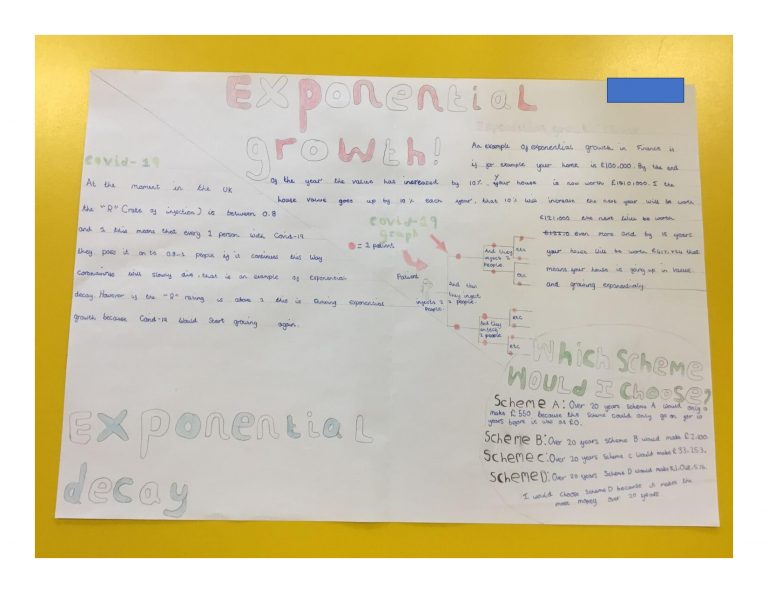 Exponential
growth!
Exponential growth Finance
An example of exponential growth in Finance is
is for example your home is £100,000. By the end
of the year the value has increased by 10%, your house is now worth £110,000. I the
house value goes up by 10% each year, that 10% will increase the next year will be worth
£121,000 the next will be worth
even more and by 15 years
your house will be worth that
means your house is going up in value
and growing exponentially.
covid-19
At the moment in the UK
the "R" (rate of infection) is between 0.8
and 1 this means that every 1 person with Covid-19
they pass it on to 0.8-1 people if it continues this way
Coronavirus will slowly die, that is an example of exponential
decay. However is the "R" rating is above 1 this is exponential
growth because Covid-19 would start growing again.
covid-19
graph
= 1 patient
Patient
infects 2
people.
And then
they infect
2 people.
And they
infect 2
people.
etc
etc
And they
infect
2 people
etc
etc
Which Scheme
Would I Choose?
Scheme A: Over 20 years Scheme A would only
make £550 because this scheme could only go on for 10
years before it was at £0.
Scheme B: Over 20 years Scheme B would make £2,100.
Scheme C: Over 20 years Scheme C would make
Scheme D: Over 20 years Scheme D would make
I would choose Scheme D because it makes the
most money over 20 years
Exponential
decay